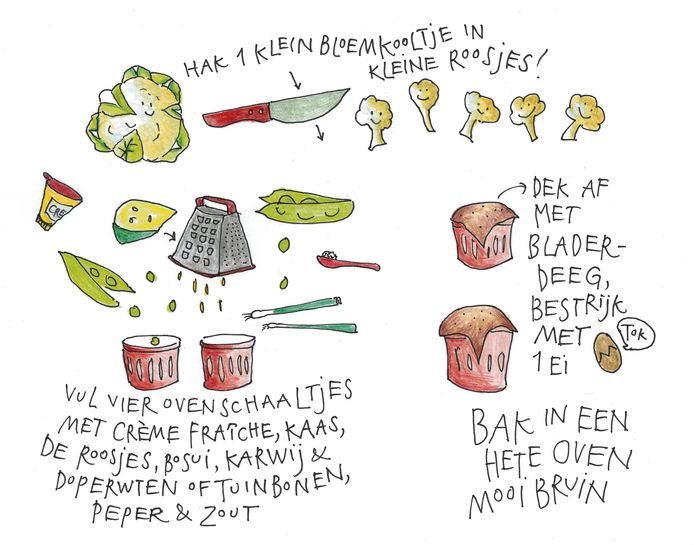 HAK 1 KLEIN BLOEMKOOLTJE IN
KLEINE ROOSJES!
CRE
DEK AF
MET
BLADER-
DEEG,
BESTRIJK
MET
1 EI
TOK
VUL VIER OVENSCHAALTJES
MET CRÈME FRAÎCHE, KAAS,
DE ROOSJES, BOSUI, KARWIJ &
DOPERWTEN OF TUINBONEN,
PEPER & ZOUT
BAK IN EEN
HETE OVEN
MOOI BRUIN